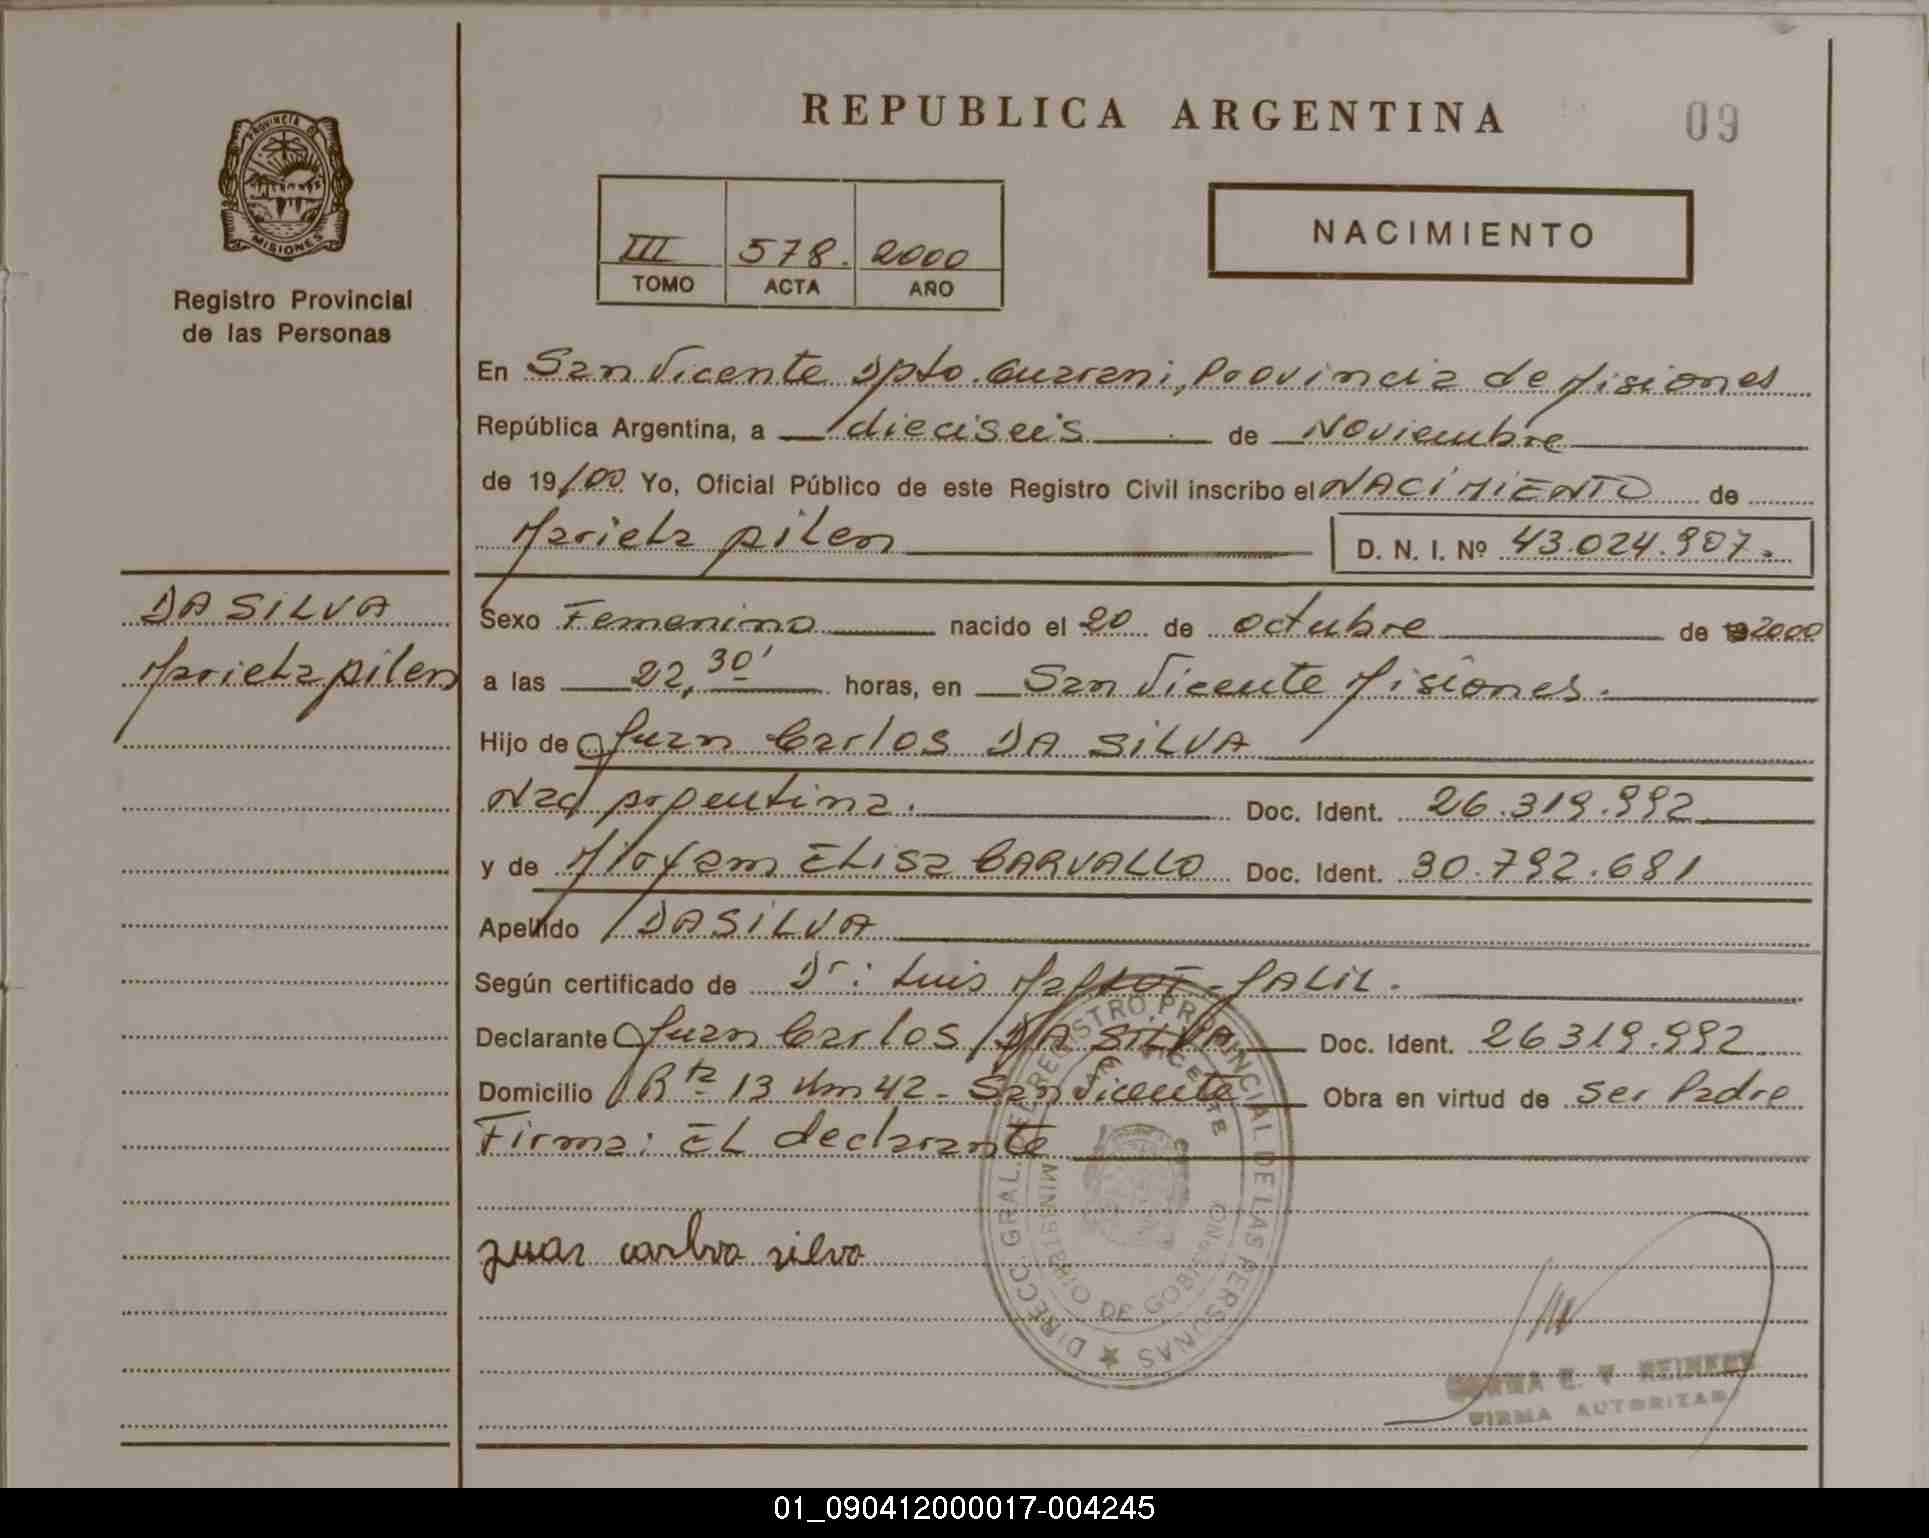 REPUBLICA ARGENTINA
09
PROVINCIA D
MISIONES
Registro Provincial
de las Personas
III 578. 2000
TOMO ACTA AÑO
NACIMIENTO
En San Vicente Dpto. Guarani, Provincia de Misiones
República Argentina, a dieciseis de Noviembre
de 19/00 Yo, Oficial Público de este Registro Civil inscribo el NACIMIENTO de
Mariela pilen D. N. I. Nº 43.024.907.
DA SILVA
Mariela pilen
Sexo Femenino nacido el 20 de octubre de 2000
a las 22,30' horas, en San Vicente Misiones.
Hijo de Juan Carlos DA SILVA
Nac argentina. Doc. Ident. 26.319.992
y de Miryam ELisa CARVALLO Doc. Ident. 30.792.681
Apellido DA SILVA
Según certificado de Dr: Luis JALIL.
Declarante Juan Carlos DA SILVA Doc. Ident. 26319.992
Domicilio Rta 13 Km 42 - San Vicente Obra en virtud de ser Padre
Firma: EL declarante
juan silva
DIRECC. GRAL. DEL REGISTRO PROVINCIAL DE LAS PERSONAS
MINISTERIO DE GOBIERNO
VICENTE
E. V. REINKE
FIRMA AUTORIZADA
01_090412000017-004245